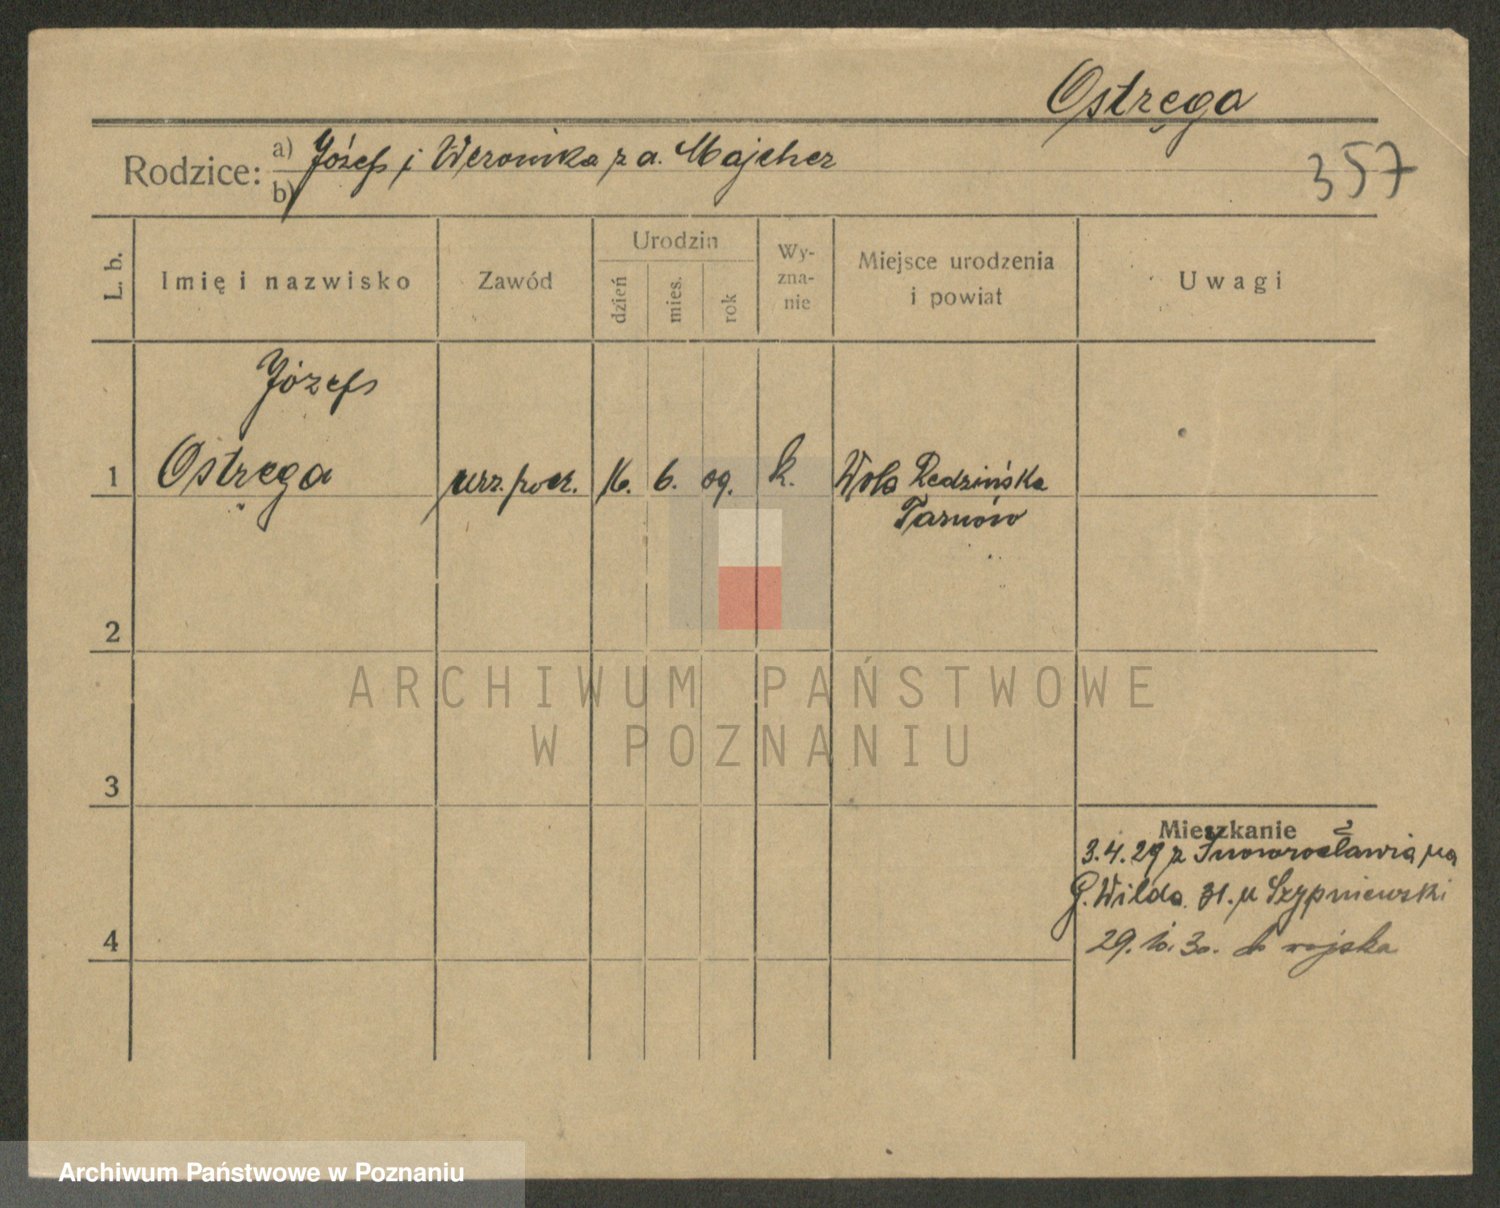 Ostręga
Rodzice: a) Józef i Weronika z d. Majcher
b)
357
L. b.
Imię i nazwisko
Zawód
Urodzin
dzień
mies.
rok
Wy-
zna-
nie
Miejsce urodzenia
i powiat
Uwagi
Józef
1 Ostręga urz. pocz. 16. 6. 09. k. Wola Rędzińska
Tarnów
2
ARCHIWUM PAŃSTWOWE
W POZNANIU
3
Mieszkanie
3.4.29 z Inowrocławia na
G. Wilda 31. u Szypniewski
4
29.10.30. do wojska
Archiwum Państwowe w Poznaniu